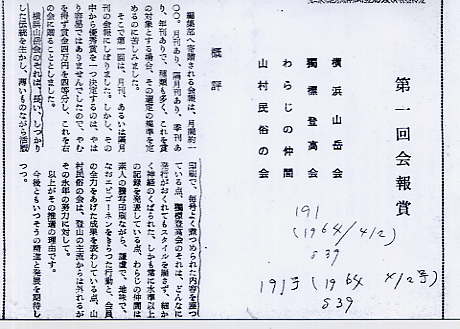 第一回会報賞
横浜山岳会
獨標登高会
わらじの仲間
山村民俗の会
191
(1964/4/2)
S39
191号(1964 4/2号)
S39
概評
編集部へ寄贈される会報は、月間約一
〇〇、月刊あり、隔月刊あり、季刊あ
り、年刊ありで、種類も多く、これを賞
の対象とする場合、その選定の規準を定
めるのに苦しみました。
そこで第一回は、月刊、あるいは隔月
刊の会報にしぼりました。しかし、その
中から優秀賞を一つ決定するのは、やは
り容易ではありませんでしたので、やむ
を得ず賞金四万円を四等分し、これを右
の会に贈ることとしました。
横浜山岳会のそれは、長い、しっかり
した伝統を生かし、薄いものながら活版
印刷で、毎号よく煮つめられた内容を盛っ
ている点、獨標登高会のそれは、どんなに
発行がおくれてもスタイルを崩さず、細か
く神経のくばられた、しかも常に水準以上
の記録を発表している点、わらじの仲間は
素人の謄写印刷ながら、謙虚で、地味で、
なおエピゴーネンをきらった行動と、会員
の全力をあげた成果を表わしている点、山
村民俗の会は、登山の主流からは外れるが
その永年の努力に対して。
以上がその推選の理由です。
今後ともいっそうの精進と発展を期待し
つつ。